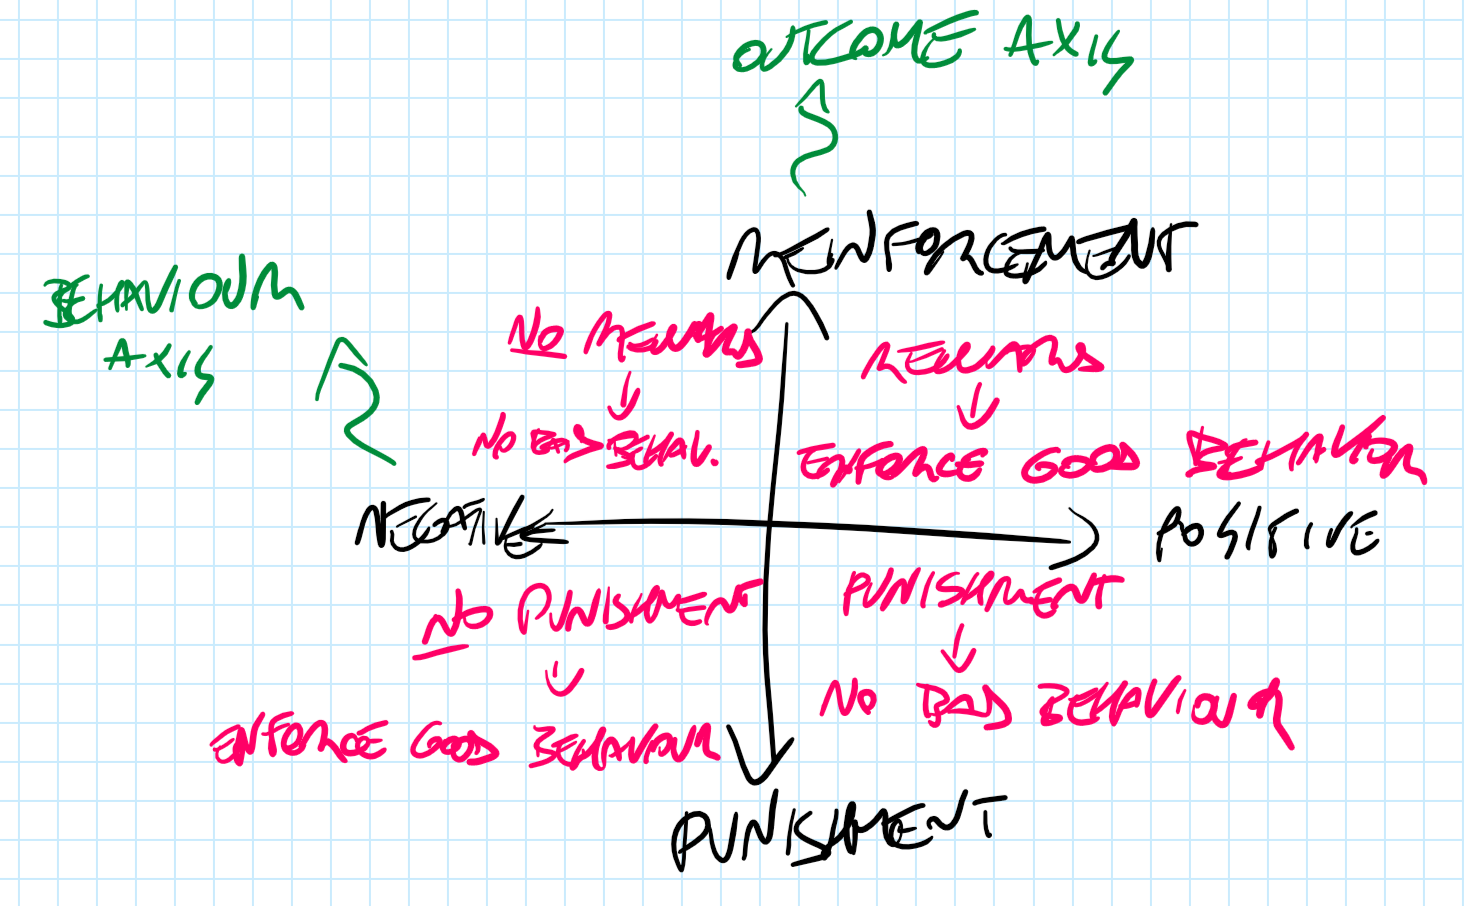 OUTCOME AXIS
REINFORCEMENT
BEHAVIOUR
AXIS
NO REWARDS
NO BAD BEHAV.
REWARDS
ENFORCE GOOD BEHAVIOR
NEGATIVE
POSITIVE
NO PUNISHMENT
ENFORCE GOOD BEHAVOUR
PUNISHMENT
NO BAD BEHAVIOUR
PUNISHMENT